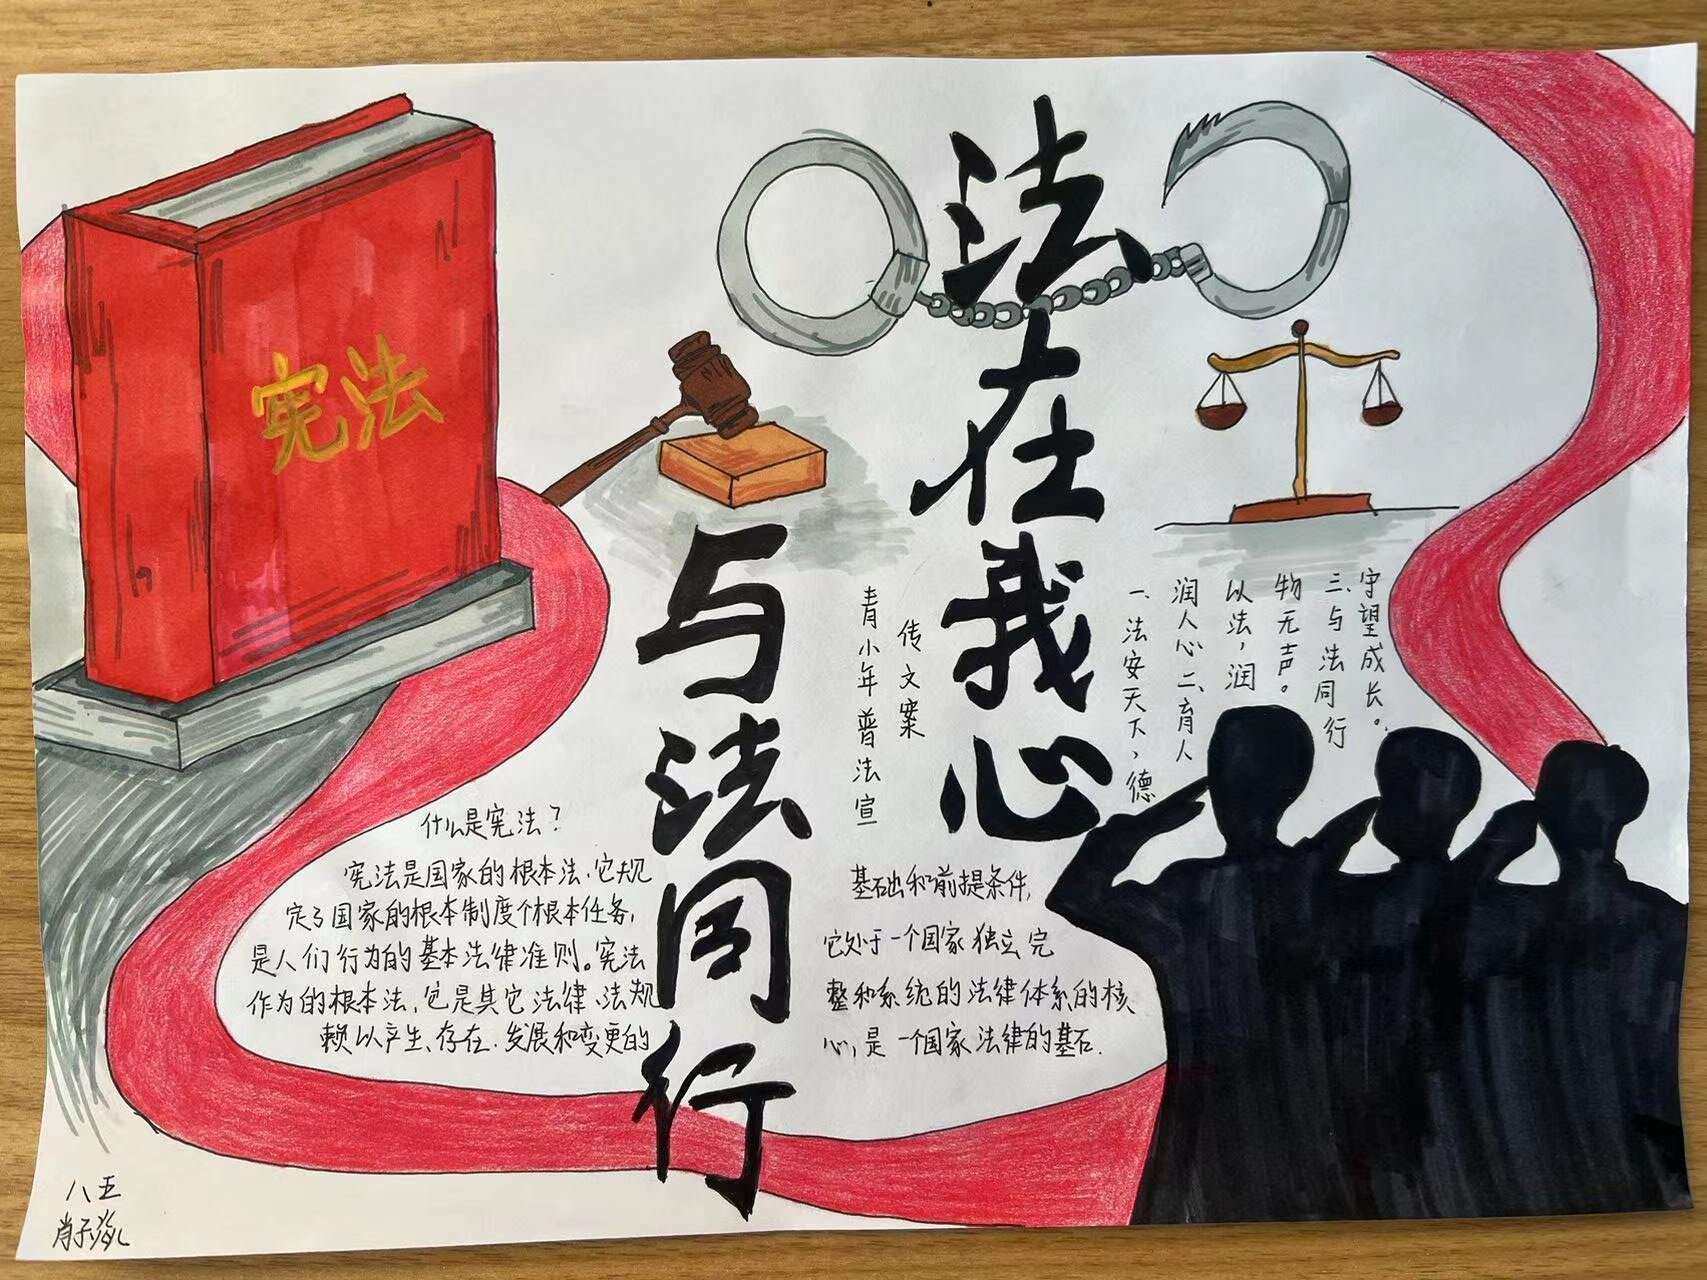 宪法
法在我心
与法同行
青小年普法宣
传文案
一、法安天下，德
润人心二、育人
以法，润
物无声。
三、与法同行
守望成长。
什么是宪法？
宪法是国家的根本法，它规
定了国家的根本制度个根本任务，
是人们行为的基本法律准则。宪法
作为的根本法，它是其它法律、法规
赖以产生、存在、发展和变更的
基础和前提条件，
它处于一个国家独立完
整和系统的法律体系的核
心，是一个国家法律的基石.
八五
肖子